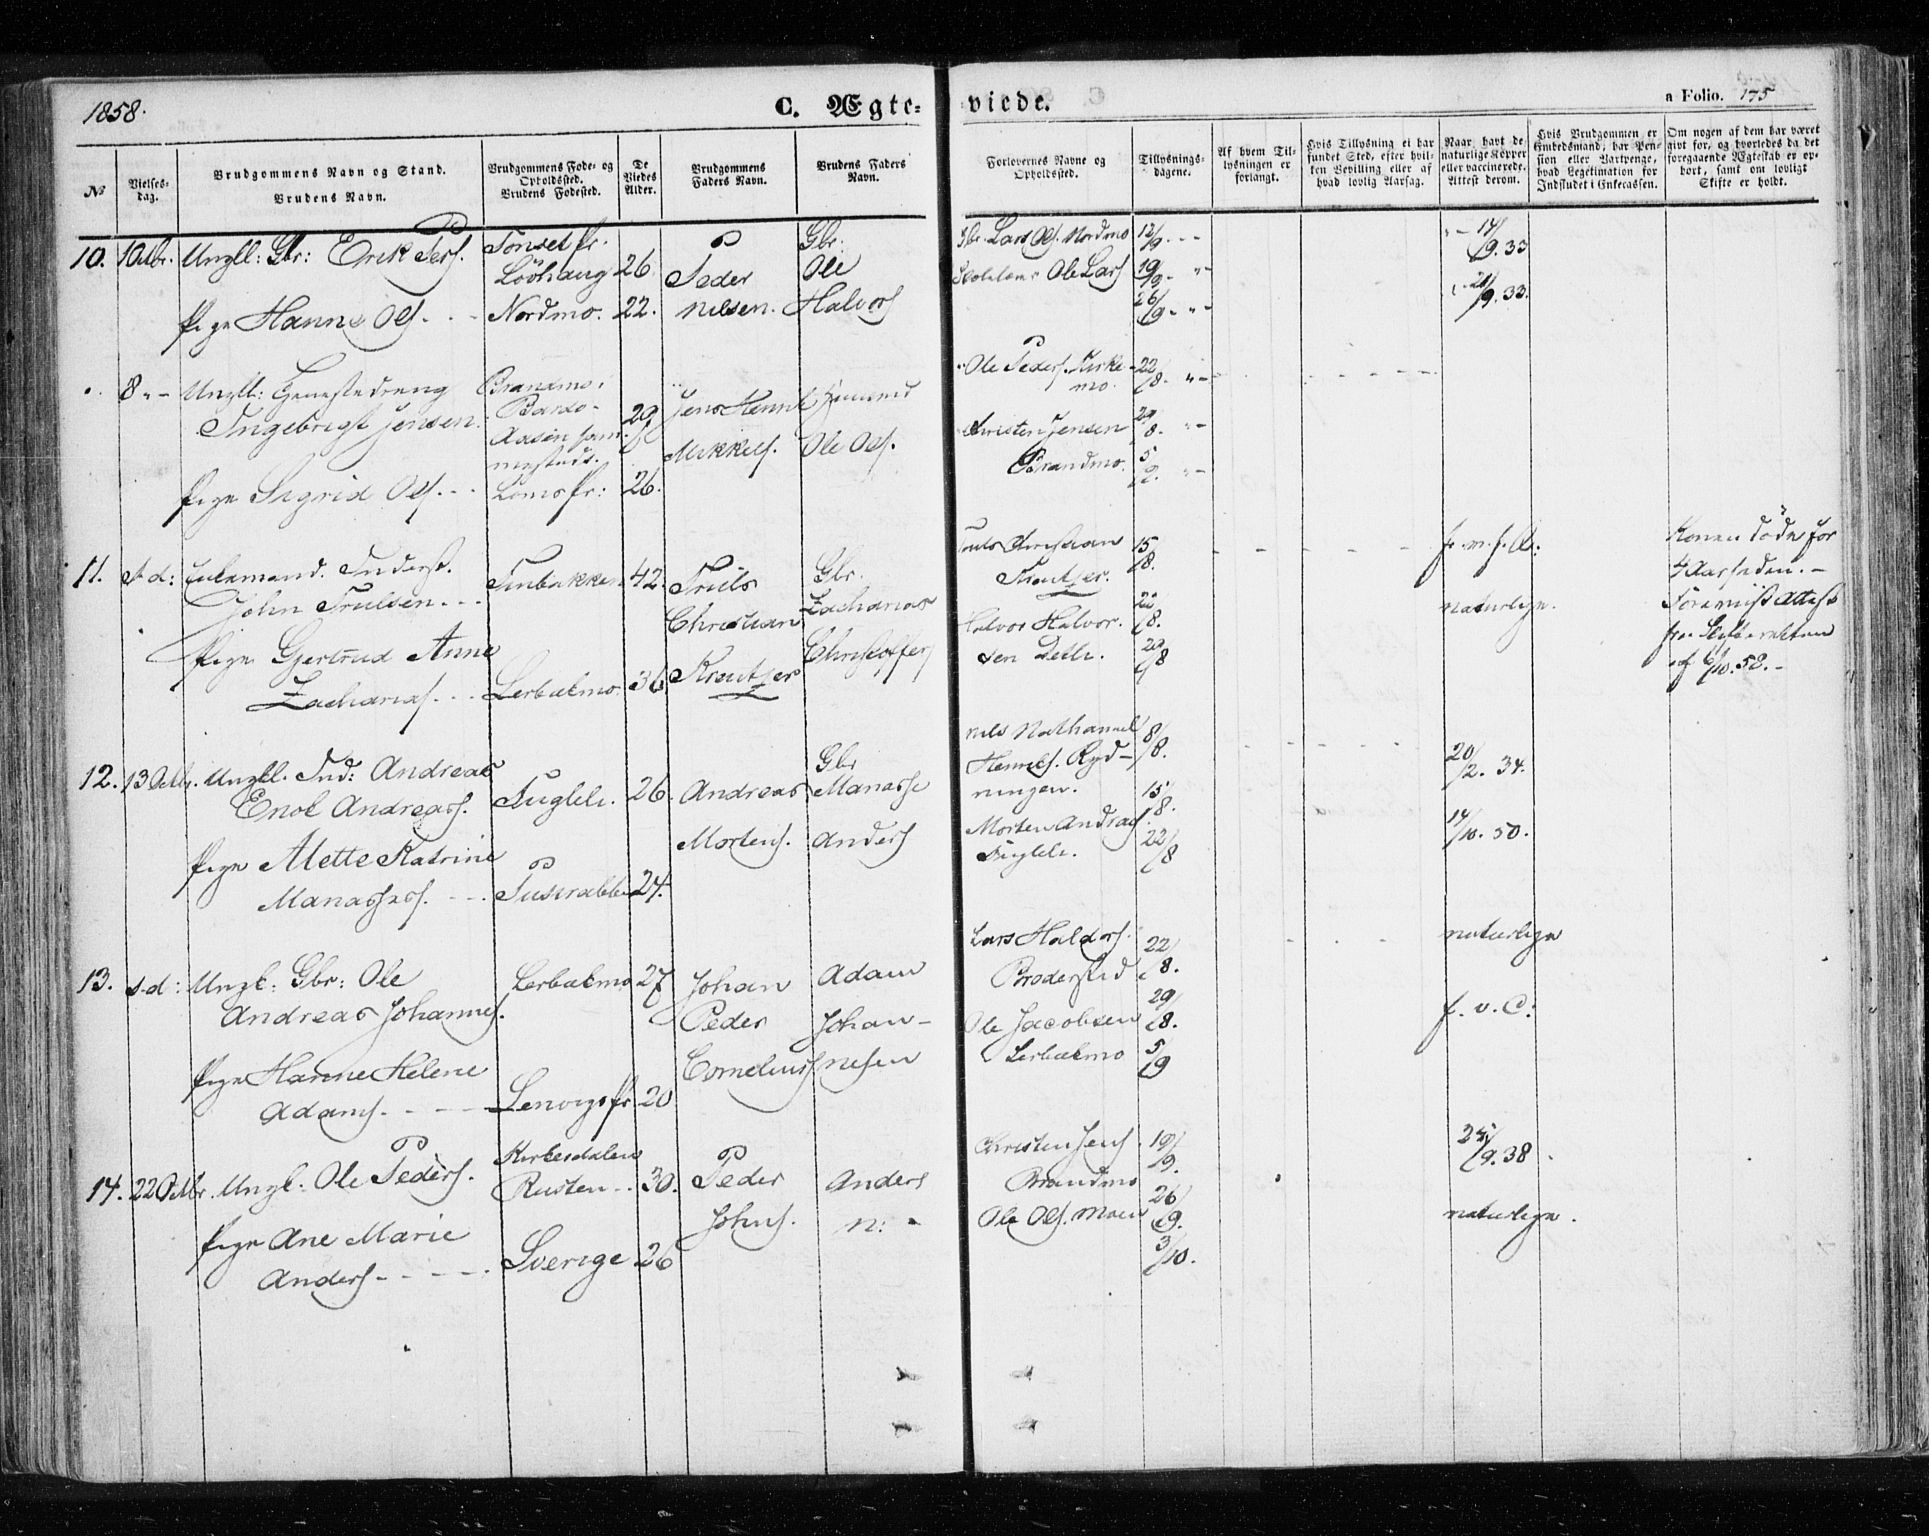 1858.
C. Ægte-
viede.
a Folio. 175
No
Vielses-
dag.
Brudgommens Navn og Stand.
Brudens Navn.
Brudgommens Føde- og
Opholdssted.
Brudens Fødested.
De
Viedes
Alder.
Brudgommens
Faders Navn.
Brudens Faders
Navn.
Forlovernes Navne og
Opholdssted.
Tillysnings-
dagene.
Af hvem Til-
lysningen er
forlangt.
Hvis Tillysning ei har
fundet Sted, efter hvil-
ken Bevilling eller af
hvad lovlig Aarsag.
Naar havt de
naturlige Kopper
eller vaccinerede.
Attest derom.
Hvis Brudgommen er
Embedsmand, har Pen-
sion eller Vartpenge,
hvad Legitimation for
Indskudet i Enkecassen.
Om nogen af dem har været
gift før, og hvorledes da det
foregaaende Ægteskab er op-
hørt, samt om lovligt
Skifte er holdt.
10. 1 Octbr. Ungk: Gbr: Erik Pers.
Tønset pr.
Løvhaug 26.
Peder
Nilsen.
Gbr.
Ole
Halvors
Pige Hanne Ols. Nordmo. 22.
Gbr. Lars Ols. Nordmo
Ole Lars
12/9
19/9
26/9
14/9. 33
21/9. 33.
8 Ungk:
Ingebrigt Jensen.
Brandmo i
Bardo
29
Jens Henrik
Mikkels.
Ole Ols.
Pige Sigrid Ols. Loms pr: 26.
Ole Peders. Kirke-
mo.
Christen Jensen
Brandmo.
22/8.
29/8.
5/9.
11. s. d: Enkemand. Inderst.
John Trulsen.
Finbakken 42.
Truls
Christian
Kreutzer
Gbr.
Zacharias
Christoffers
Pige Gjertrud Anne
Zacharias. Lerbækmo. 36
Truls Christian
Kreutzer.
Halvor Halvor-
sen
15/8.
22/8.
29/8
f. v. f. A:
naturlige.
Konen døde for
4 Aar siden.
Forevist Attest
fra Skifteretten
af 6/10. 58.
12. 13 Octbr. Ungk. Ind: Andreas
Enok Andreass. Fugleli. 26.
Andreas
Mortens.
Gbr
Manasse
Anders
Pige Mette Katrine
Manasses. 24.
Nils Nathanael
Henriks. Ryd-
ningen.
Morten Andreas.
Fugleli.
8/8.
15/8.
22/8
20/2. 34.
14/10. 50.
13. s. d: Ungk: Gbr: Ole
Andreas Johannes.
Lerbækmo 27
Johan
Peder
Cornelius
Adam
Johan-
nesen
Pige Hanne Helene
Adams. Lenvigs pr. 20
Lars Haldors.
Broderstad
Ole Jacobsen
Lerbækmo
22/8.
29/8.
5/9
naturlige
f. v. C:
14. 22 Octbr. Ungk: Ole Peders.
Kirkesdalen
Rusten 30.
Peder
Johns.
Anders
N:
Pige Ane Marie
Anders Sverige 26
Christen Jens.
Brandmo
Ole Ols. Moen
19/9.
26/9.
3/10.
25/9. 38
naturlige.